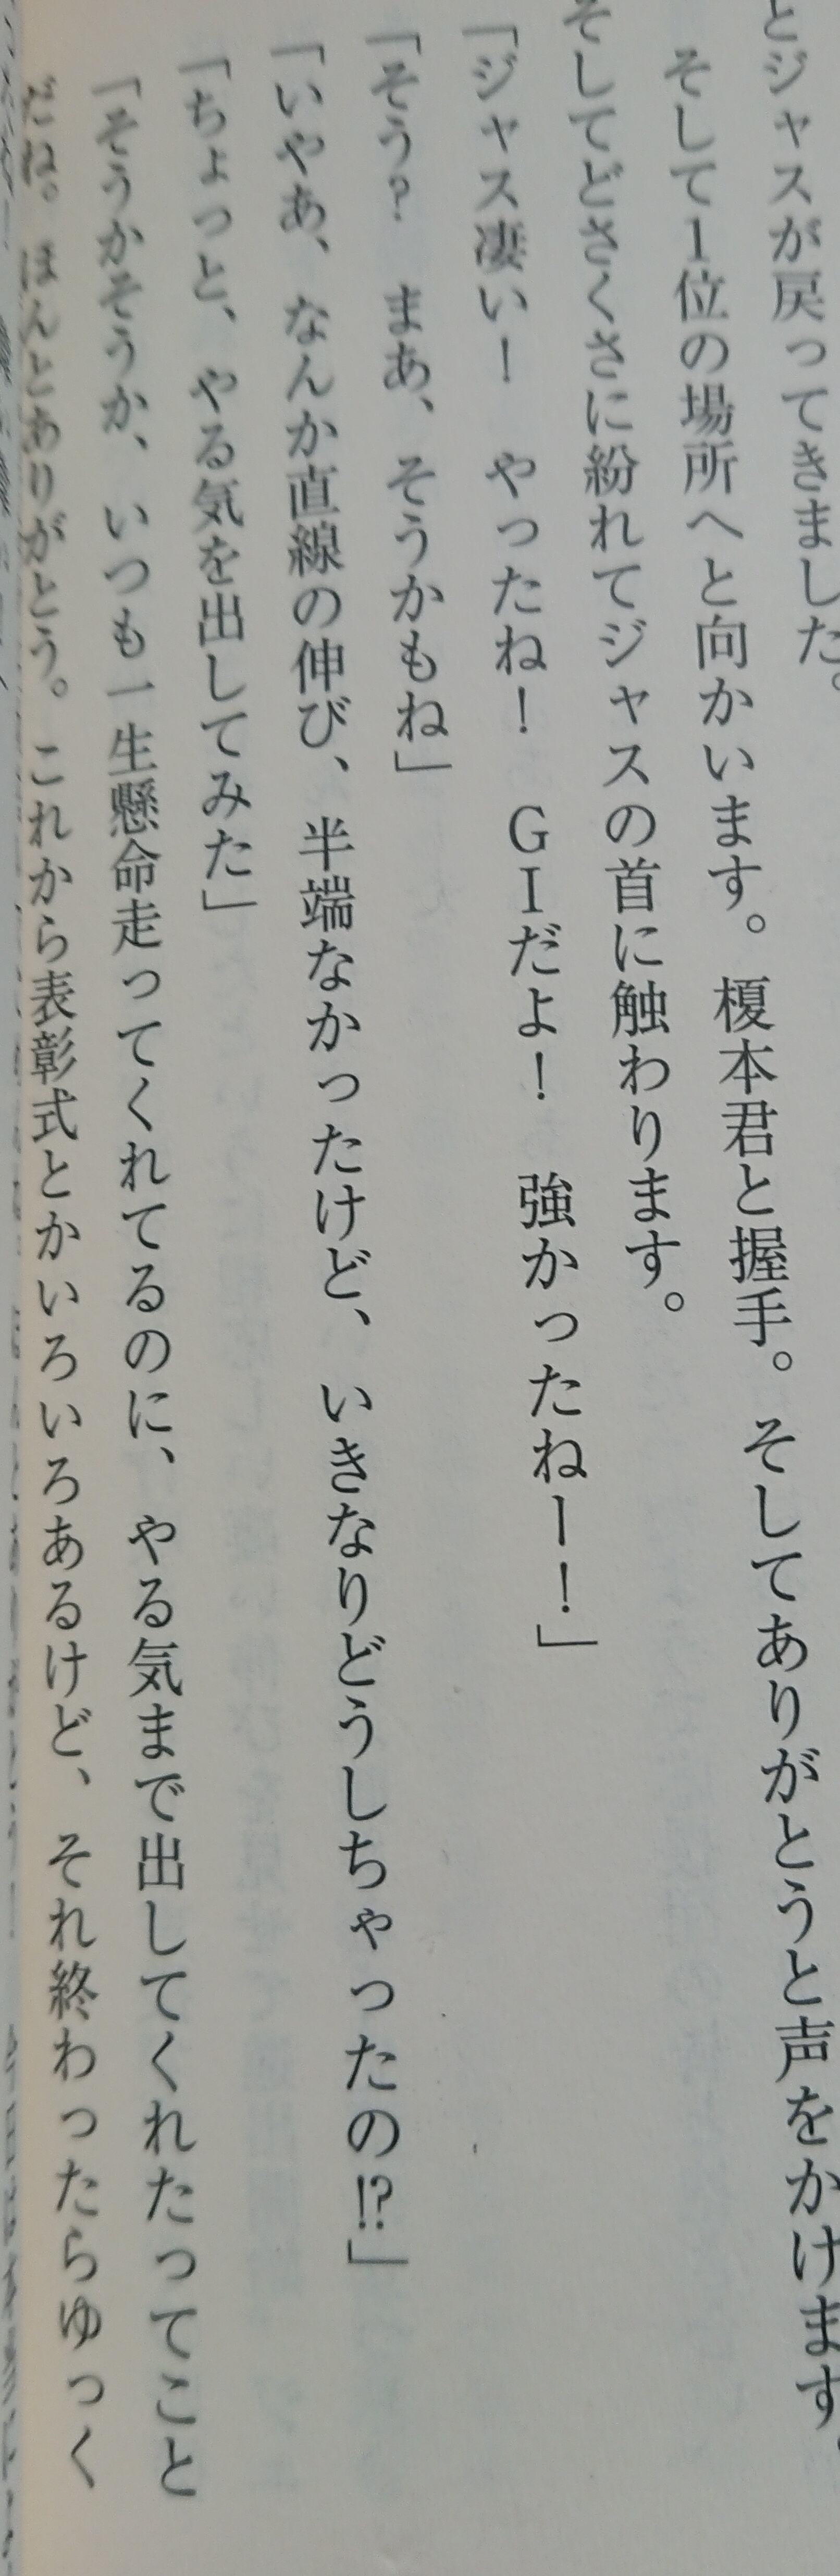 とジャスが戻ってきました。
そして1位の場所へと向かいます。榎本君と握手。そしてありがとうと声をかけます。
そしてどさくさに紛れてジャスの首に触わります。
「ジャス凄い！　やったね！　GⅠだよ！　強かったねー！」
「そう？　まあ、そうかもね」
「いやあ、なんか直線の伸び、半端なかったけど、いきなりどうしちゃったの⁉」
「ちょっと、やる気を出してみた」
「そうかそうか、いつも一生懸命走ってくれてるのに、やる気まで出してくれたってこと
だね。ほんとありがとう。これから表彰式とかいろいろあるけど、それ終わったらゆっく